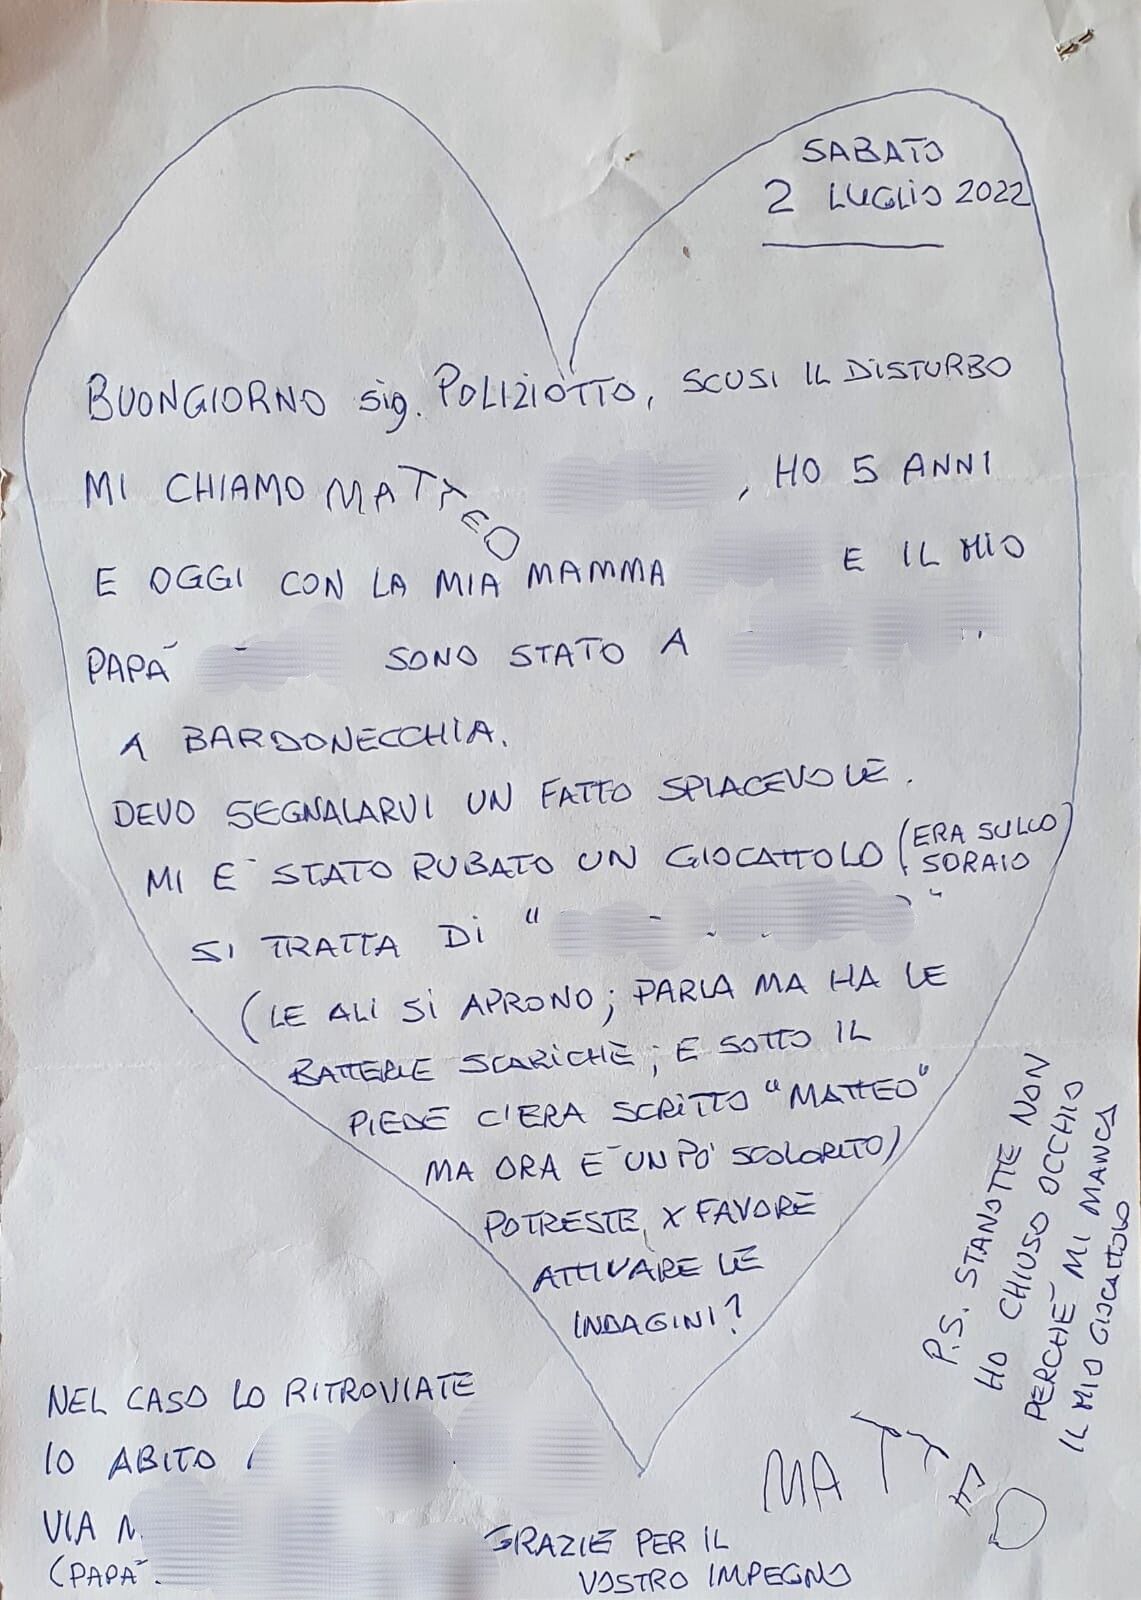 SABATO
2 LUGLIO 2022
BUONGIORNO sig. POLIZIOTTO, SCUSI IL DISTURBO
MI CHIAMO MATTEO , HO 5 ANNI
E OGGI CON LA MIA MAMMA E IL MIO
PAPA' SONO STATO A
A BARDONECCHIA.
DEVO SEGNALARVI UN FATTO SPIACEVOLE.
MI E' STATO RUBATO UN GIOCATTOLO (ERA SULLO
SDRAIO
SI TRATTA DI " "
(LE ALI SI APRONO; PARLA MA HA LE
BATTERIE SCARICHE; E SOTTO IL
PIEDE C'ERA SCRITTO "MATTEO"
MA ORA E' UN PO' SCOLORITO)
POTRESTE, X FAVORE
ATTIVARE LE
INDAGINI?
P.S. STANOTTE NON
HO CHIUSO OCCHIO
PERCHE' MI MANCA
IL MIO GIOCATTOLO
NEL CASO LO RITROVIATE
IO ABITO
VIA
(PAPA'
MATTEO
GRAZIE PER IL
VOSTRO IMPEGNO